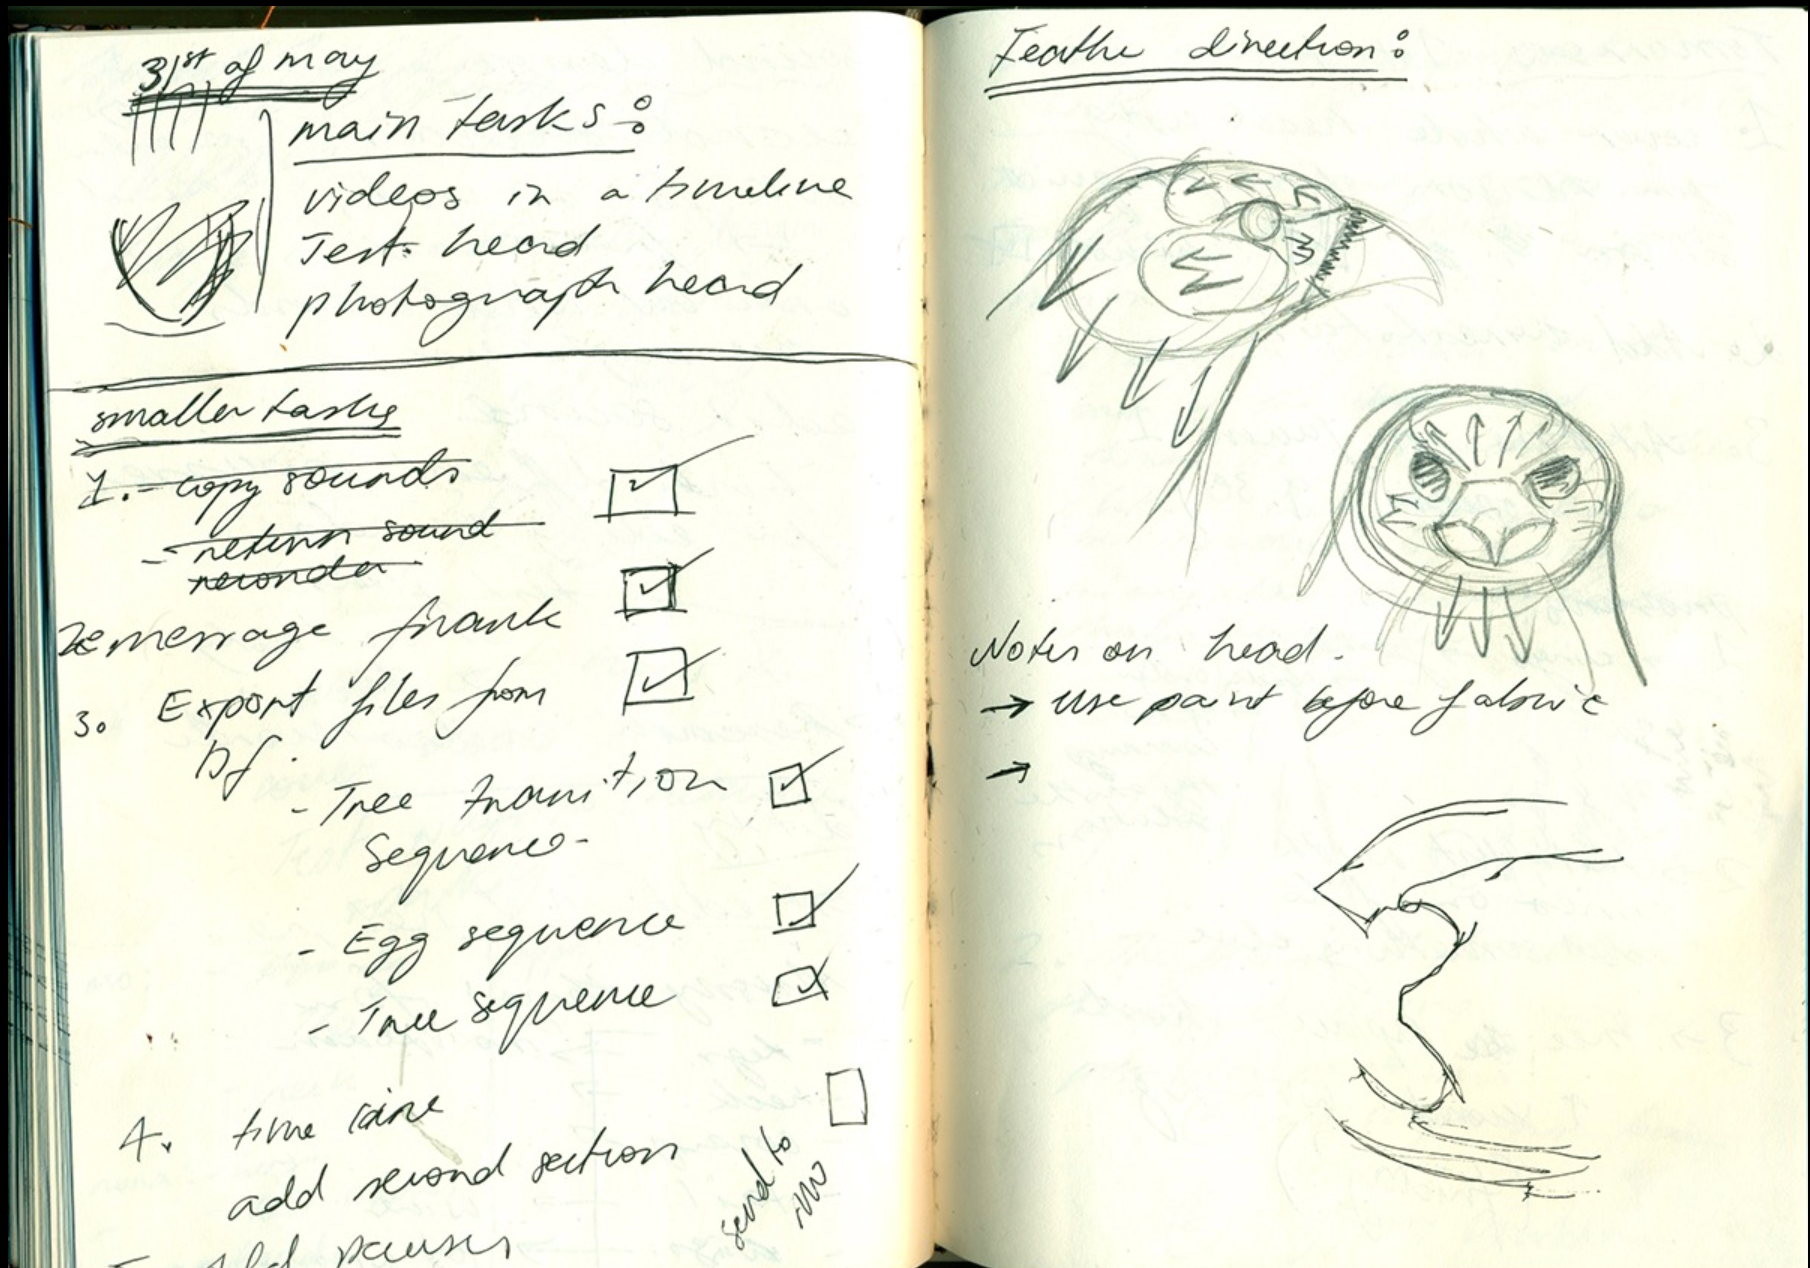 31st of may
main tasks:
videos in a timeline
Test head
photograph head
smaller tasks
1. - copy sounds
- return sound
recorder
2. message frank
3. Export files from
Df.
- Tree transition
Sequence-
- Egg sequence
- Tree sequence
4. time line
add second section
send to
Add pauses
Feathe direction:
Notes on head.
→ Use paint before fabric
→